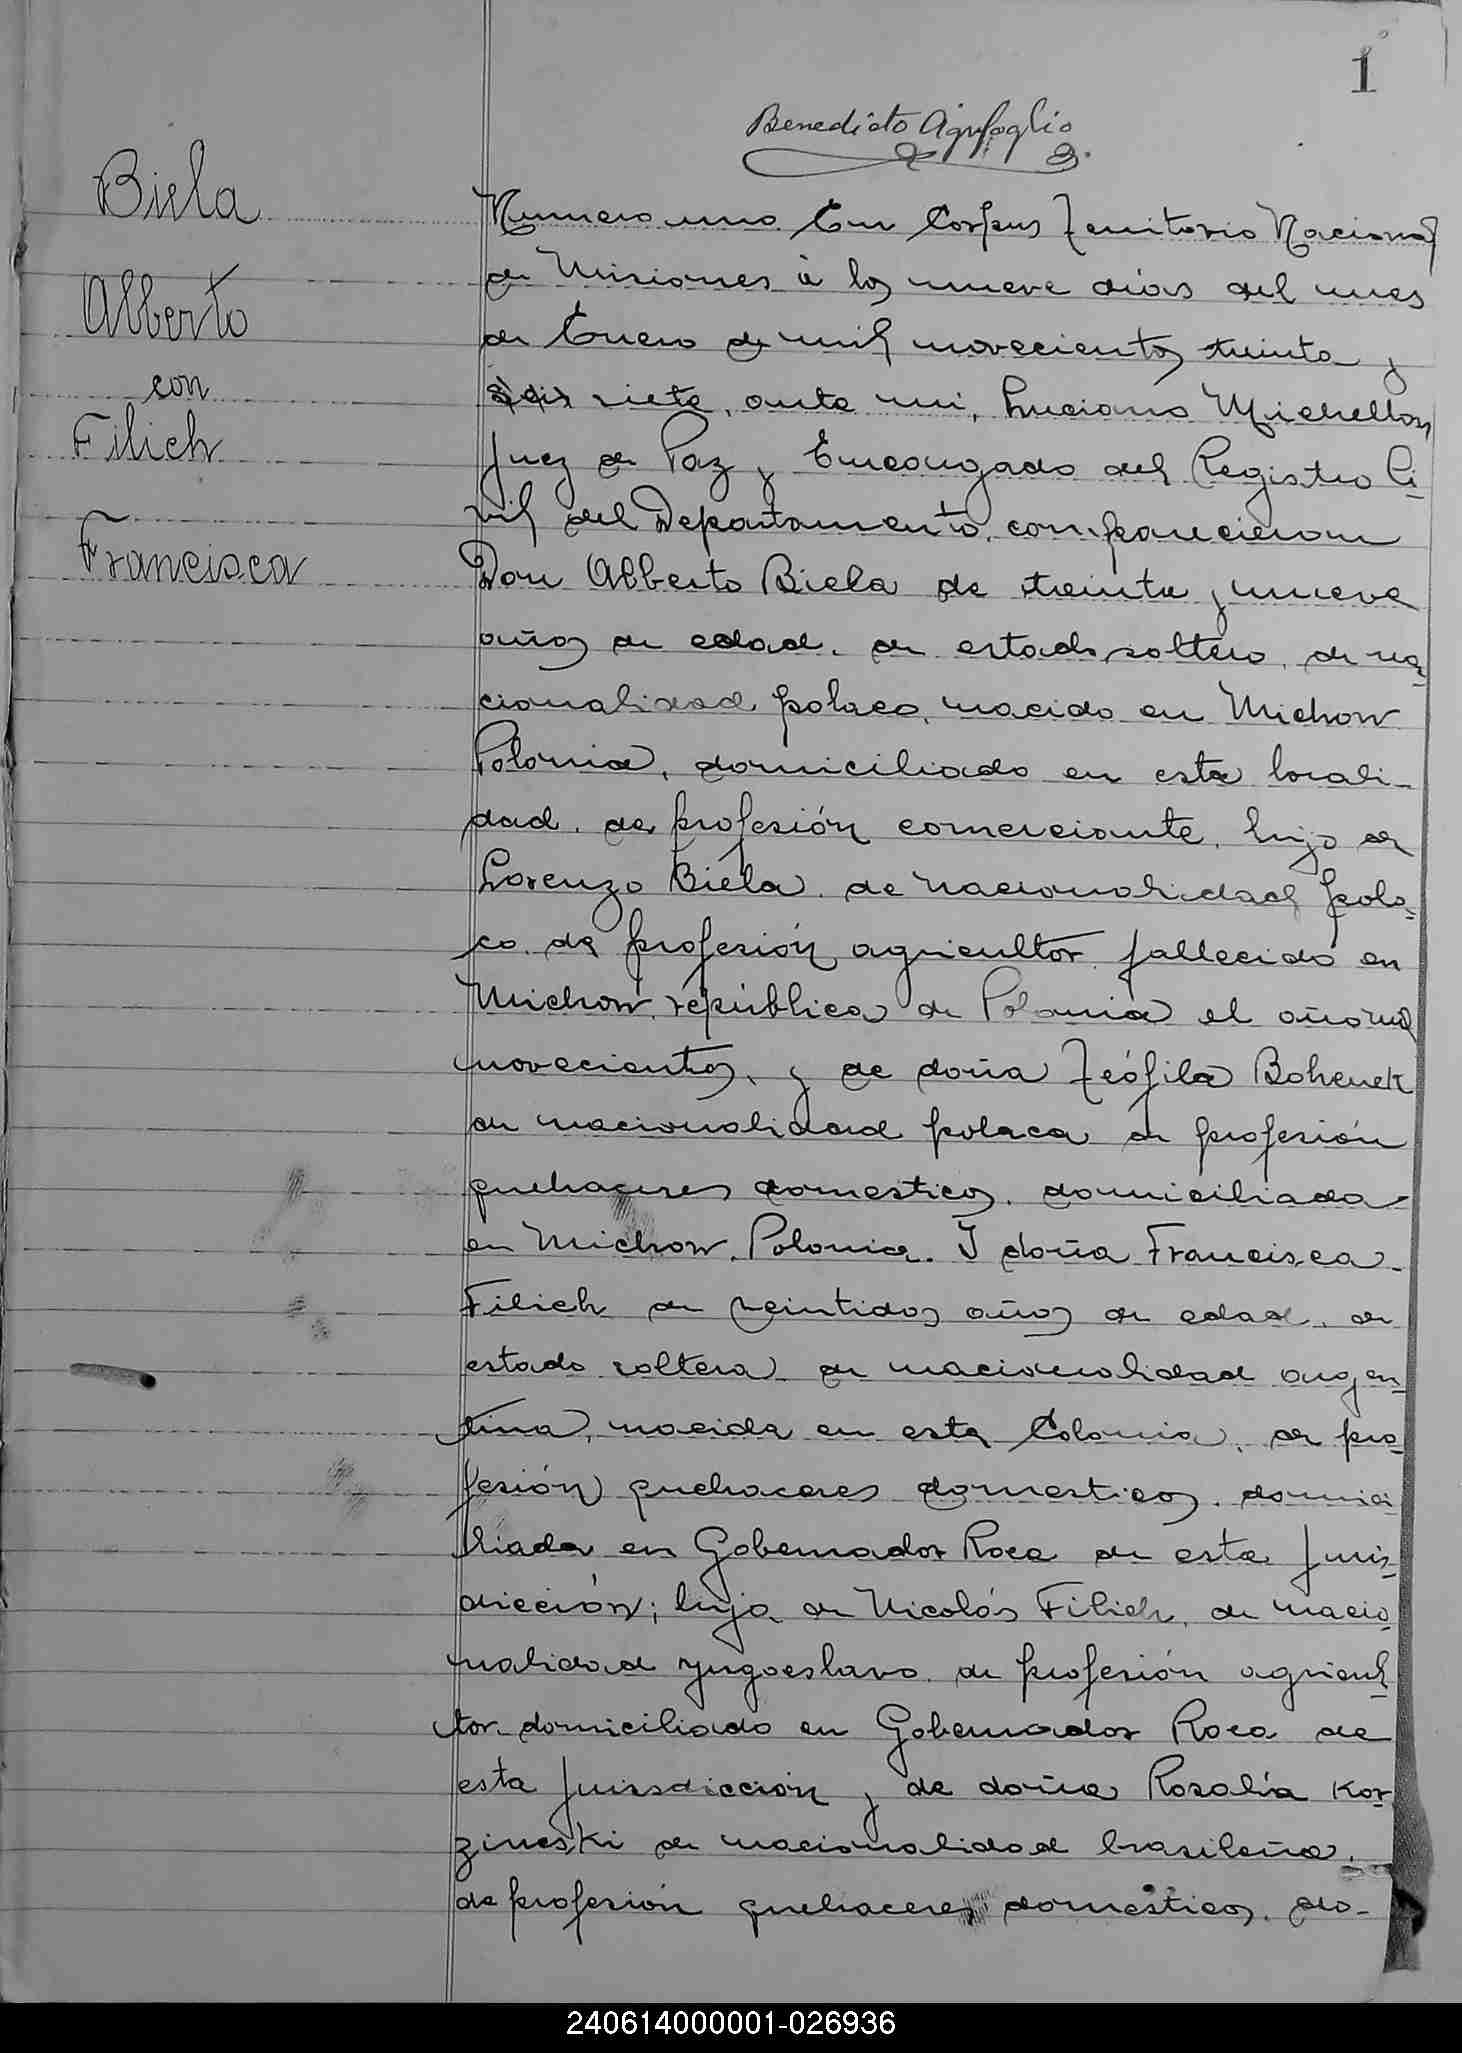 1
Benedicto
Biela
Alberto
con
Filich
Francisca
Numero uno. En Corpus Territorio Nacional
de Misiones á los nueve dias del mes
de Enero de mil novecientos treinta y
seis siete, ante mi, Luciano Michellon
Juez de Paz y Encargado del Registro Ci-
vil del Departamento, comparecieron
Don Alberto Biela de treinta y nueve
años de edad, de estado soltero, de na-
cionalidad polaco, nacido en Michow
Polonia, domiciliado en esta locali-
dad, de profesión comerciante, hijo de
Lorenzo Biela, de nacionalidad pola-
co de profesión agricultor, fallecido en
Michow, república de Polonia el año mil
novecientos, y de doña Teófila Bohenek
de nacionalidad polaca de profesión
quehaceres domesticos, domiciliada
en Michow, Polonia. I doña Francisca
Filich de veintidos años de edad, de
estado soltera de nacionalidad argen-
tina, nacida en esta Colonia, de pro-
fesión quehaceres domesticos, domici
liada en Gobernador Roca de esta juris-
dicción; hija de Nicolás Filich, de nacio
nalidad yugoeslavo, de profesión agricul-
tor, domiciliado en Gobernador Roca de
esta jurisdicción y de doña Rosalía Kor-
zineski de nacionalidad brasileña,
de profesión quehaceres domésticos, do-
240614000001-026936